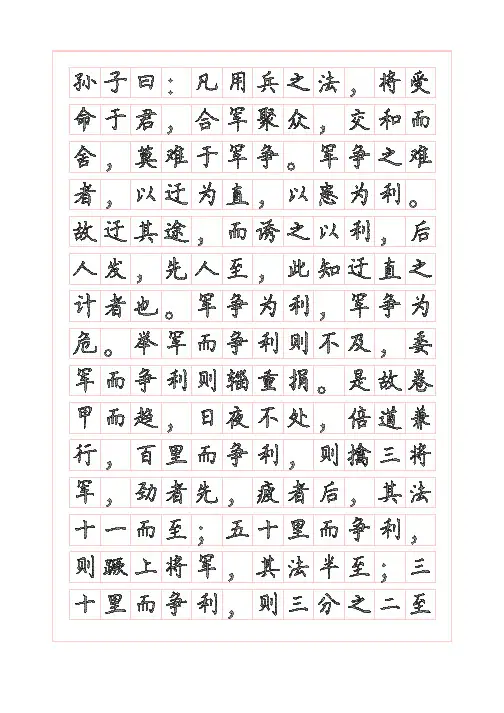 孙子曰：凡用兵之法，将受
命于君，合军聚众，交和而
舍，莫难于军争。军争之难
者，以迂为直，以患为利。
故迂其途，而诱之以利，后
人发，先人至，此知迂直之
计者也。军争为利，军争为
危。举军而争利则不及，委
军而争利则辎重捐。是故卷
甲而趋，日夜不处，倍道兼
行，百里而争利，则擒三将
军，劲者先，疲者后，其法
十一而至；五十里而争利，
则蹶上将军，其法半至；三
十里而争利，则三分之二至